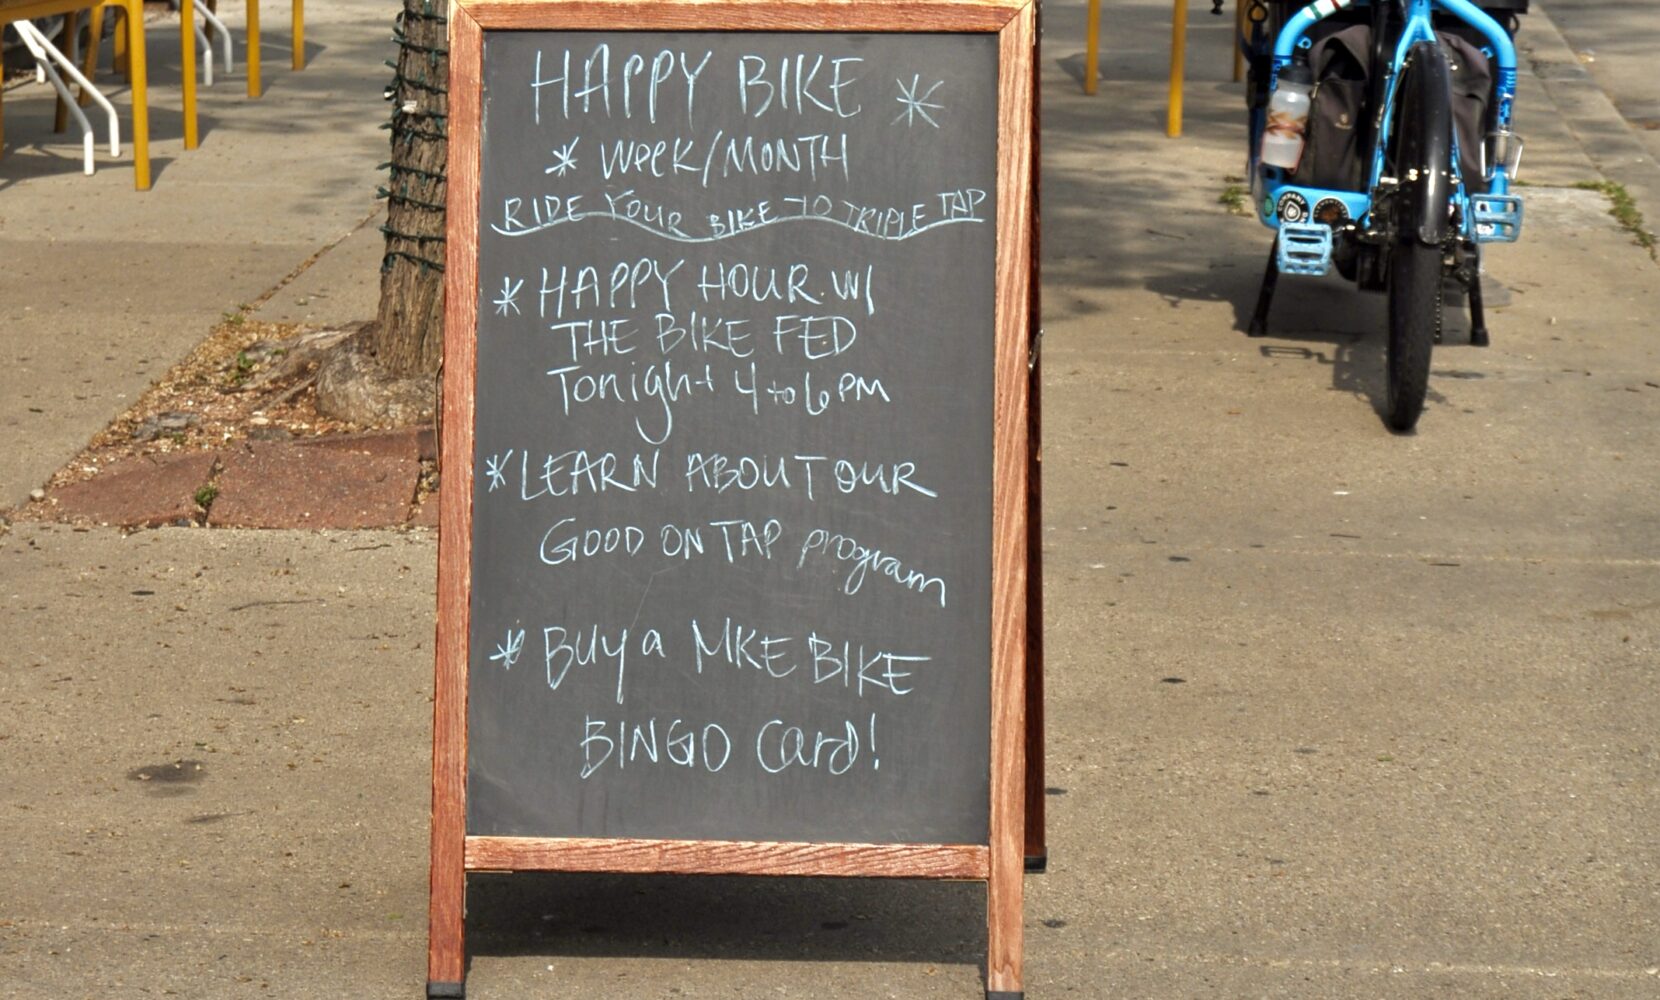 HAPPY BIKE *
* WEEK/MONTH
RIDE YOUR BIKE TO TRIPLE TAP
* HAPPY HOUR W/
THE BIKE FED
Tonight 4 to 6 PM
* LEARN ABOUT OUR
GOOD ON TAP program
* BUY a MKE BIKE
BINGO Card!